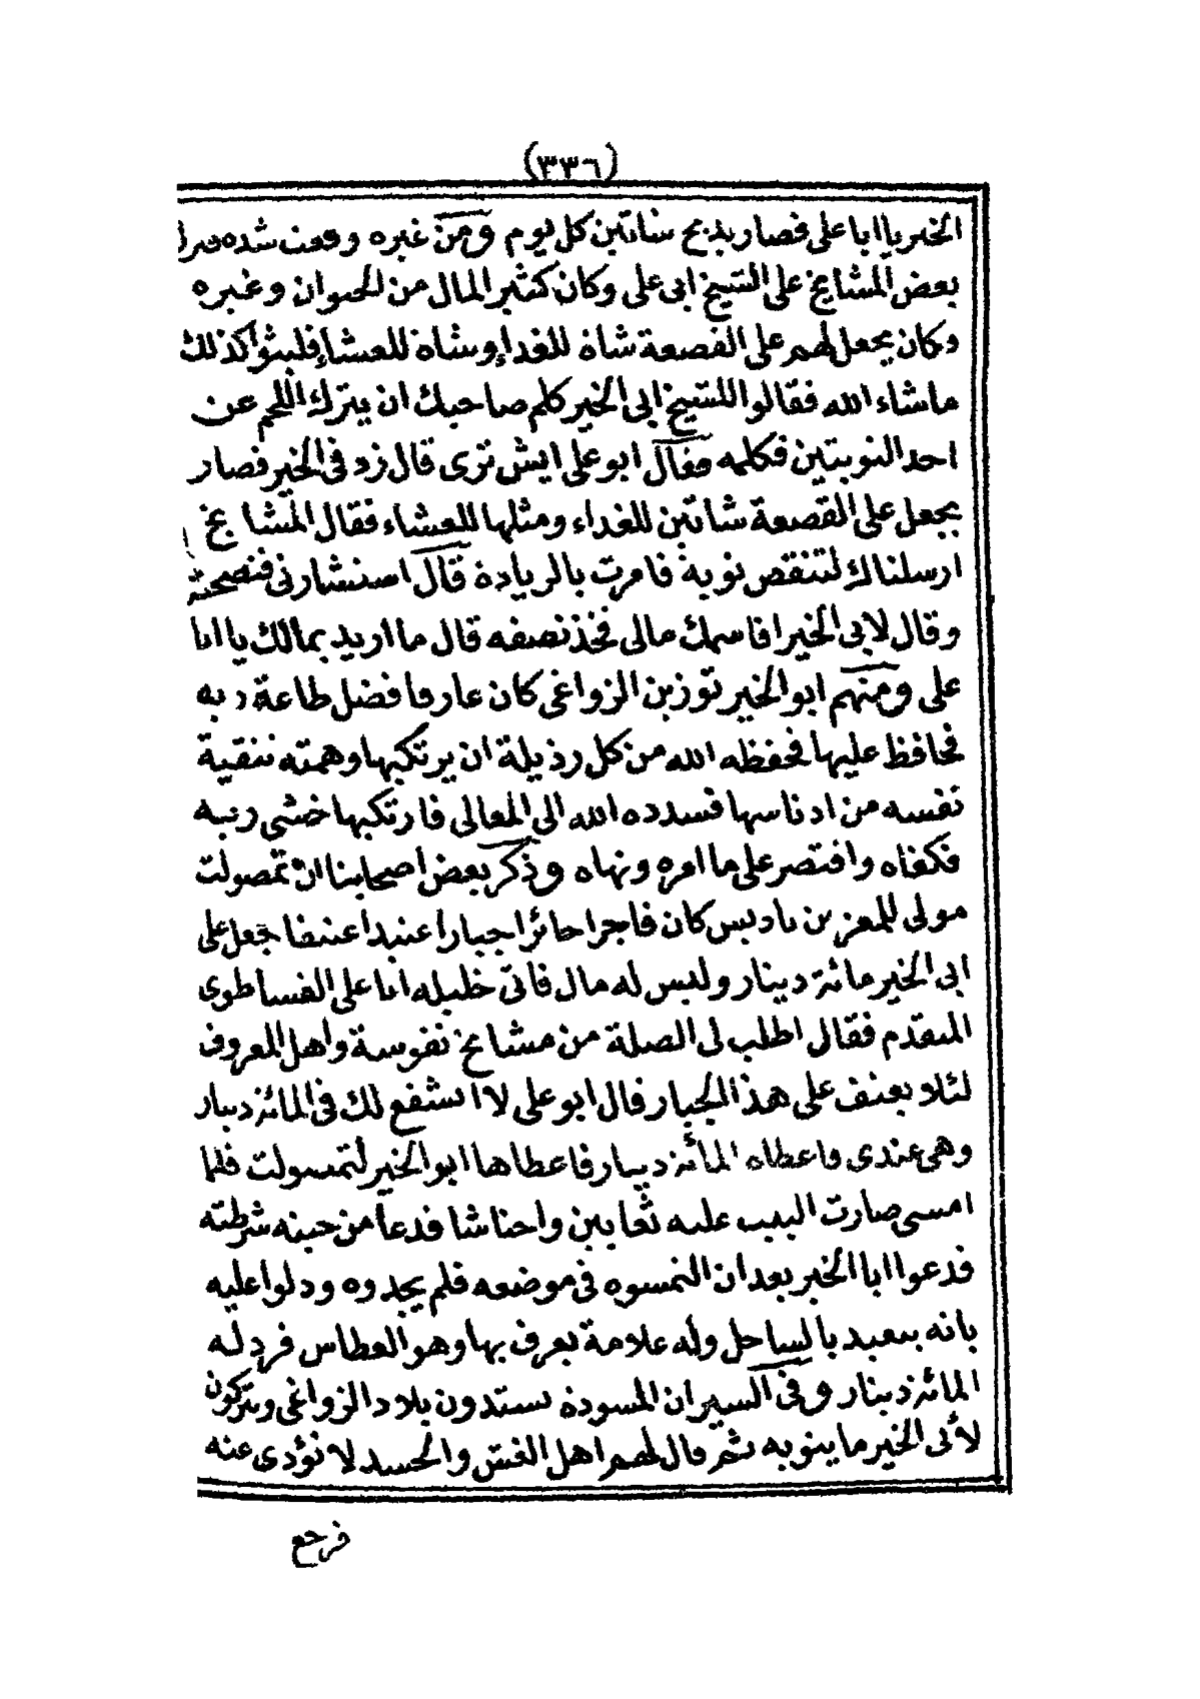 (٣٣٦)
الخير يا ابا على فصار يذبح شاتين كل يوم ومن غيره وقعت شده
بعض المشايخ على الشيخ ابى على وكان كثير المال من الحيوان وغيره
وكان يجعل لهم على القصعة شاة للغداء وشاة للعشاء فلبثوا كذلك
ما شاء الله فقالوا للشيخ ابى الخير كلم صاحبك ان يترك اللحم عن
احد النوبتين فكلمه فقال ابو على ايش ترى قال زد فى الخير فصار
يجعل على القصعة شاتين للغداء ومثلها للعشاء فقال المشايخ
ارسلناك لتنقص نوبة فامرت بالزيادة قال استشارنى فنصحته
وقال لابى الخير اقاسمك مالى فخذ نصفه قال ما اريد بمالك يا ابا
على ومنهم ابو الخير توزين الزواغى كان عارفا فضل طاعة ربه
فحافظ عليها فحفظه الله من كل رذيلة ان يرتكبها وهمته تنقية
نفسه من ادناسها فسدده الله الى المعالى فارتكبها خشى ربه
فكفاه واقتصر على ما امره ونهاه وذكر بعض اصحابنا ان تمصولت
مولى للمعز بن باديس كان فاجرا جائرا جبارا عنيدا عنيفا جعل على
ابى الخير مائة دينار وليس له مال فاتى خليله ابا على الفساطوى
المتقدم فقال اطلب لى الصلة من مشايخ نفوسة واهل المعروف
لئلا يعنف على هذا الجبار قال ابو على لا استشفع لك فى المائة دينار
وهى عندى واعطاه المائة دينار فاعطاها ابو الخير لتمسولت فلما
امسى صارت البيت عليه ثعابين واحناشا فدعا من حينه شرطته
فدعوا ابا الخير بعد ان التمسوه فى موضعه فلم يجدوه ودلوا عليه
بانه يتعبد بالساحل وله علامة يعرف بها وهو العطاس فرد له
المائة دينار وفى السير ان المسودة يستدون بلاد الزواغى ويتركون
لأبى الخير ما ينوبه ثم قال لهم اهل الغش والحسد لا نؤدى عنه
فرجع